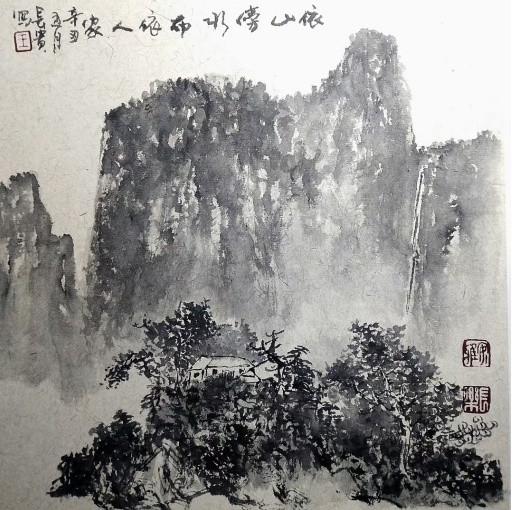 依山傍水而依人家
辛丑
五月
長貴
寫
王